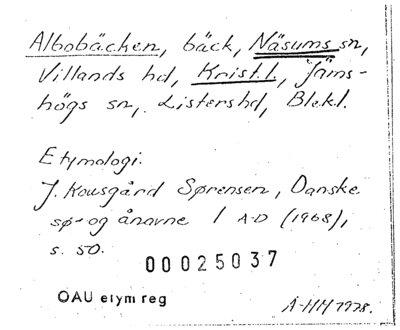 Albobäcken, bäck, Näsums sn,
Villands hd, Krist.l., Jäms-
högs sn, Listers hd, Blek.l.
Etymologi:
J. Kousgård Sørensen, Danske
sø- og ånavne 1 A-D (1968),
s. 50.
00025037
OAU etym reg
A-HM 1978.